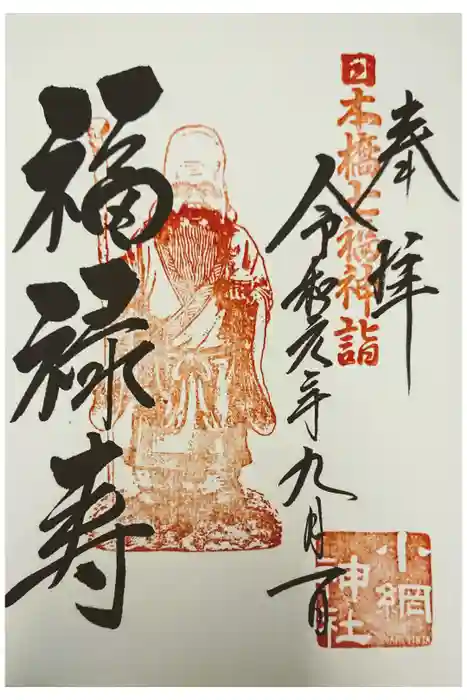 奉拝
日本橋七福神詣
令和元年九月一日
福禄寿
小網
神社